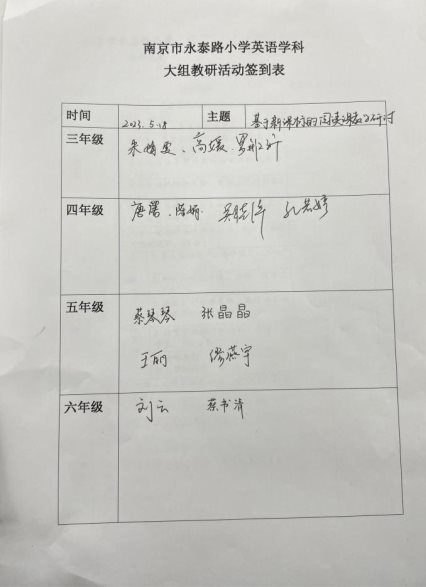 南京市永泰路小学英语学科
大组教研活动签到表
时间 2023.5.18 主题 基于新课标的阅读课教学研讨
三年级 朱婧雯、高媛、
四年级 唐馨、陈娟 吴晓萍 孔若婷
五年级 蔡琴琴 张晶晶
王丽 缪燕宇
六年级 刘云 蔡书清